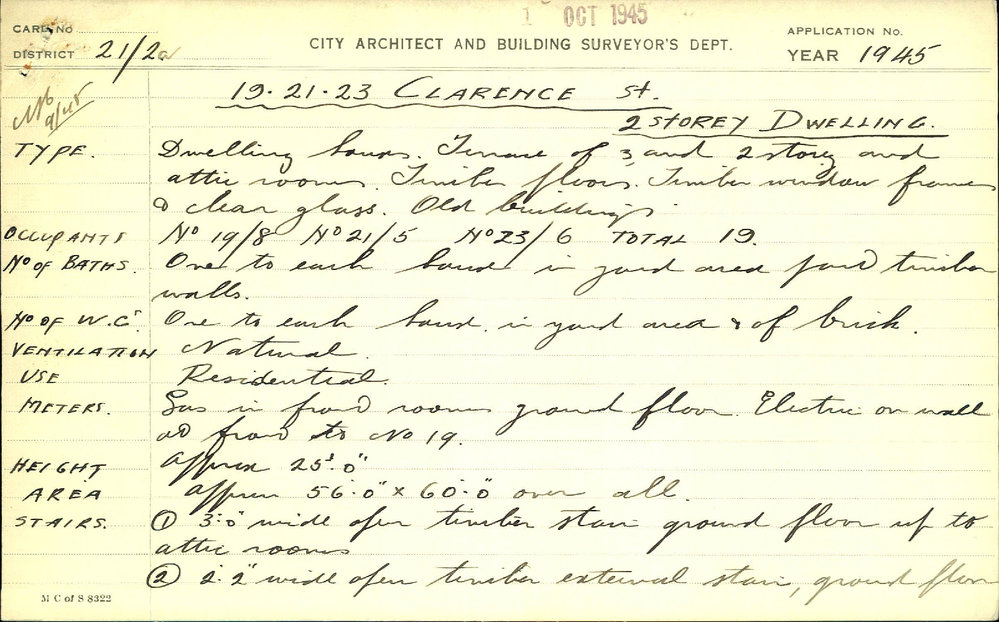 1 OCT 1945
CARD No
DISTRICT 21/2a
CITY ARCHITECT AND BUILDING SURVEYOR'S DEPT.
APPLICATION No.
YEAR 1945
19.21.23 CLARENCE St.
2 STOREY DWELLING.
TYPE. Dwelling house. Terrace of 3, and 2 storey and
attic rooms. Timber floors. Timber window frames
& clear glass. Old buildings.
OCCUPANTS No 19/8 No 21/5 No 23/6 TOTAL 19.
No OF BATHS. One to each house in yard area and timber
walls.
No OF W.C's. One to each house in yard area & of brick.
VENTILATION Natural.
USE Residential.
METERS. Gas in front rooms ground floor. Electric on wall
at front to No 19.
HEIGHT Approx 25'.0"
AREA approx 56'.0" x 60'.0" over all.
STAIRS. ① 3'.0" wide open timber stair ground floor up to
attic rooms
② 2'.2" wide open timber external stair, ground floor
M C of S 8322